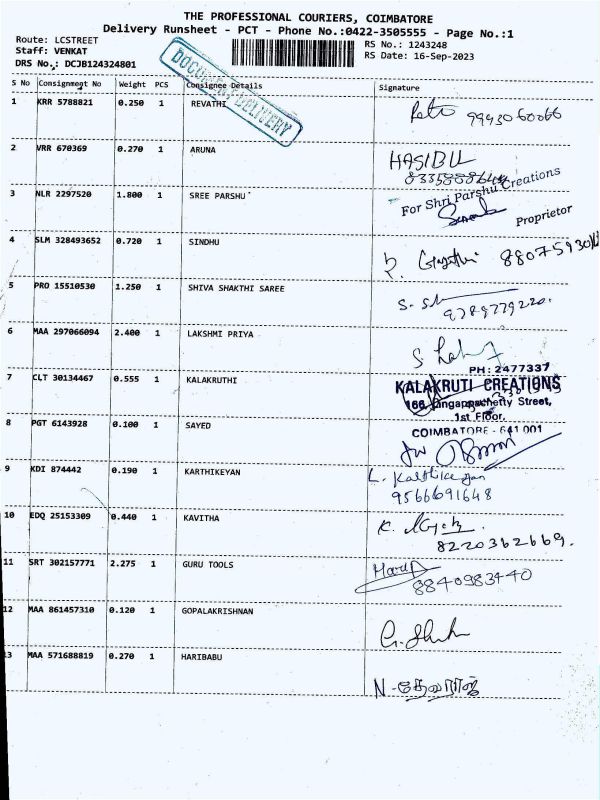 THE PROFESSIONAL COURIERS, COIMBATORE
Delivery Runsheet - PCT - Phone No.:0422-3505555 - Page No.:1
Route: LCSTREET
RS No.: 1243248
Staff: VENKAT
RS Date: 16-Sep-2023
DRS No.: DCJB124324801
DOCUMENT DELIVERY
S No Consignment No Weight PCS Consignee Details Signature
1 KRR 5788821 0.250 1 REVATHI
9943060066
2 VRR 670369 0.270 1 ARUNA HASIBUL
3 NLR 2297520 1.800 1 SREE PARSHU
For Shri Parshu Creations
Proprietor
4 SLM 328493652 0.720 1 SINDHU
5 PRO 15510530 1.250 1 SHIVA SHAKTHI SAREE
9789779220.
6 MAA 297066094 2.400 1 LAKSHMI PRIYA
PH: 2477337
7 CLT 30134467 0.555 1 KALAKRUTHI
KALAKRUTI CREATIONS
166, Street,
1st Floor,
8 PGT 6143928 0.100 1 SAYED
COIMBATORE - 641 001
9 KDI 874442 0.190 1 KARTHIKEYAN
L. Karthikeyan
9566691648
10 EDQ 25153309 0.440 1 KAVITHA
8220362669.
11 SRT 302157771 2.275 1 GURU TOOLS
8840983440
12 MAA 861457310 0.120 1 GOPALAKRISHNAN
13 MAA 571688819 0.270 1 HARIBABU